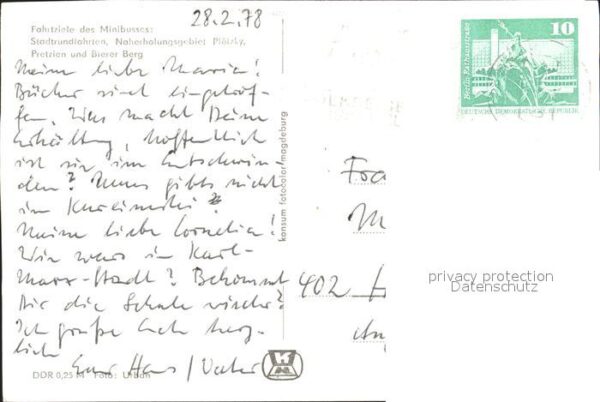 28.2.78
Fahrtziele des Minibusses:
Stadtrundfahrten, Naherholungsgebiet Plötzky,
Pretzien und Bierer Berg
Meine liebe Maria!
Bücher sind eingetrof-
fen. Was macht Deine
Erkältung, hoffentlich
ist sie im Entschwin-
den? Muns gibts nicht
im
Meine liebe Cornelia!
Wie wars in Karl-
Marx-Stadt? Bekommt
Dir die Schule wieder?
Ich grüße Euch herz-
lich Euer Hans / Vater
DDR 0,25 M Foto: Urban
konsum fotocolor magdeburg
10
Berlin, Rathausstraße
DEUTSCHE DEMOKRATISCHE REPUBLIK
Fra
M
402
privacy protection
Datenschutz